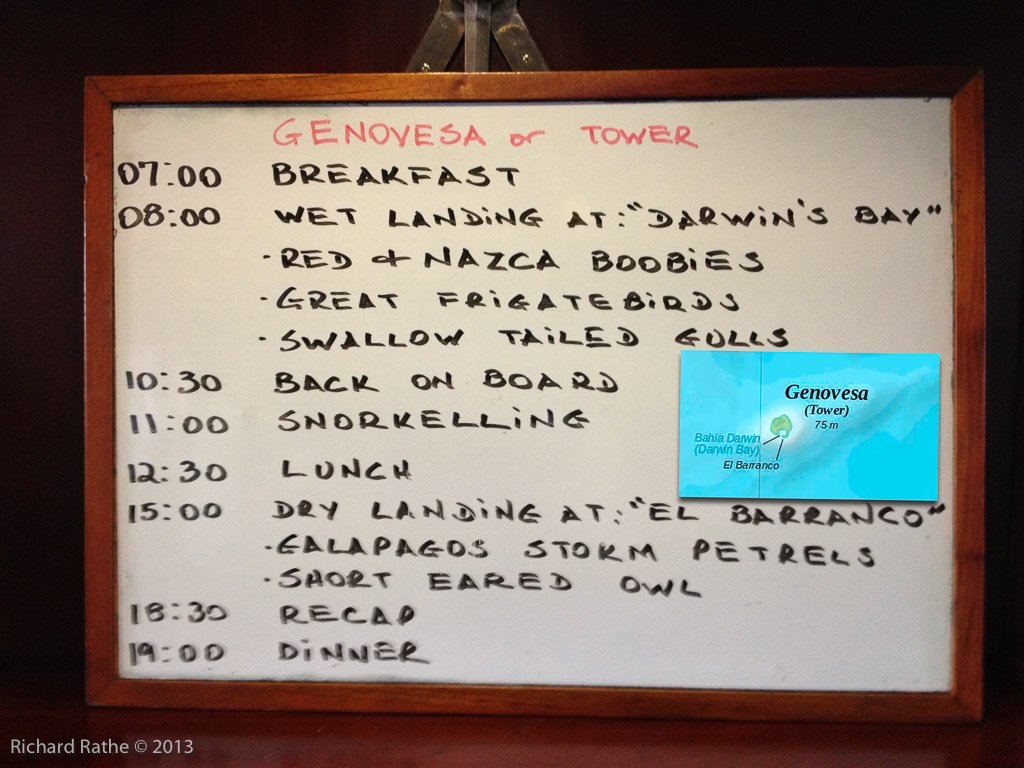 GENOVESA or TOWER
07:00 BREAKFAST
08:00 WET LANDiNG AT: "DARWIN'S BAY"
·RED & NAZCA BOOBiES
·GREAT FRiGATEBiRDS
·SWALLOW TAiLED GULLS
10:30 BACK ON BOARD
11:00 SNORKELLiNG
12:30 LUNCH
Genovesa
(Tower)
75 m
Bahía Darwin
(Darwin Bay)
El Barranco
15:00 DRY LANDiNG AT: "EL BARRANCO"
·GALAPAGOS STORM PETRELS
·SHORT EARED OWL
18:30 RECAP
19:00 DiNNER
Richard Rathe © 2013